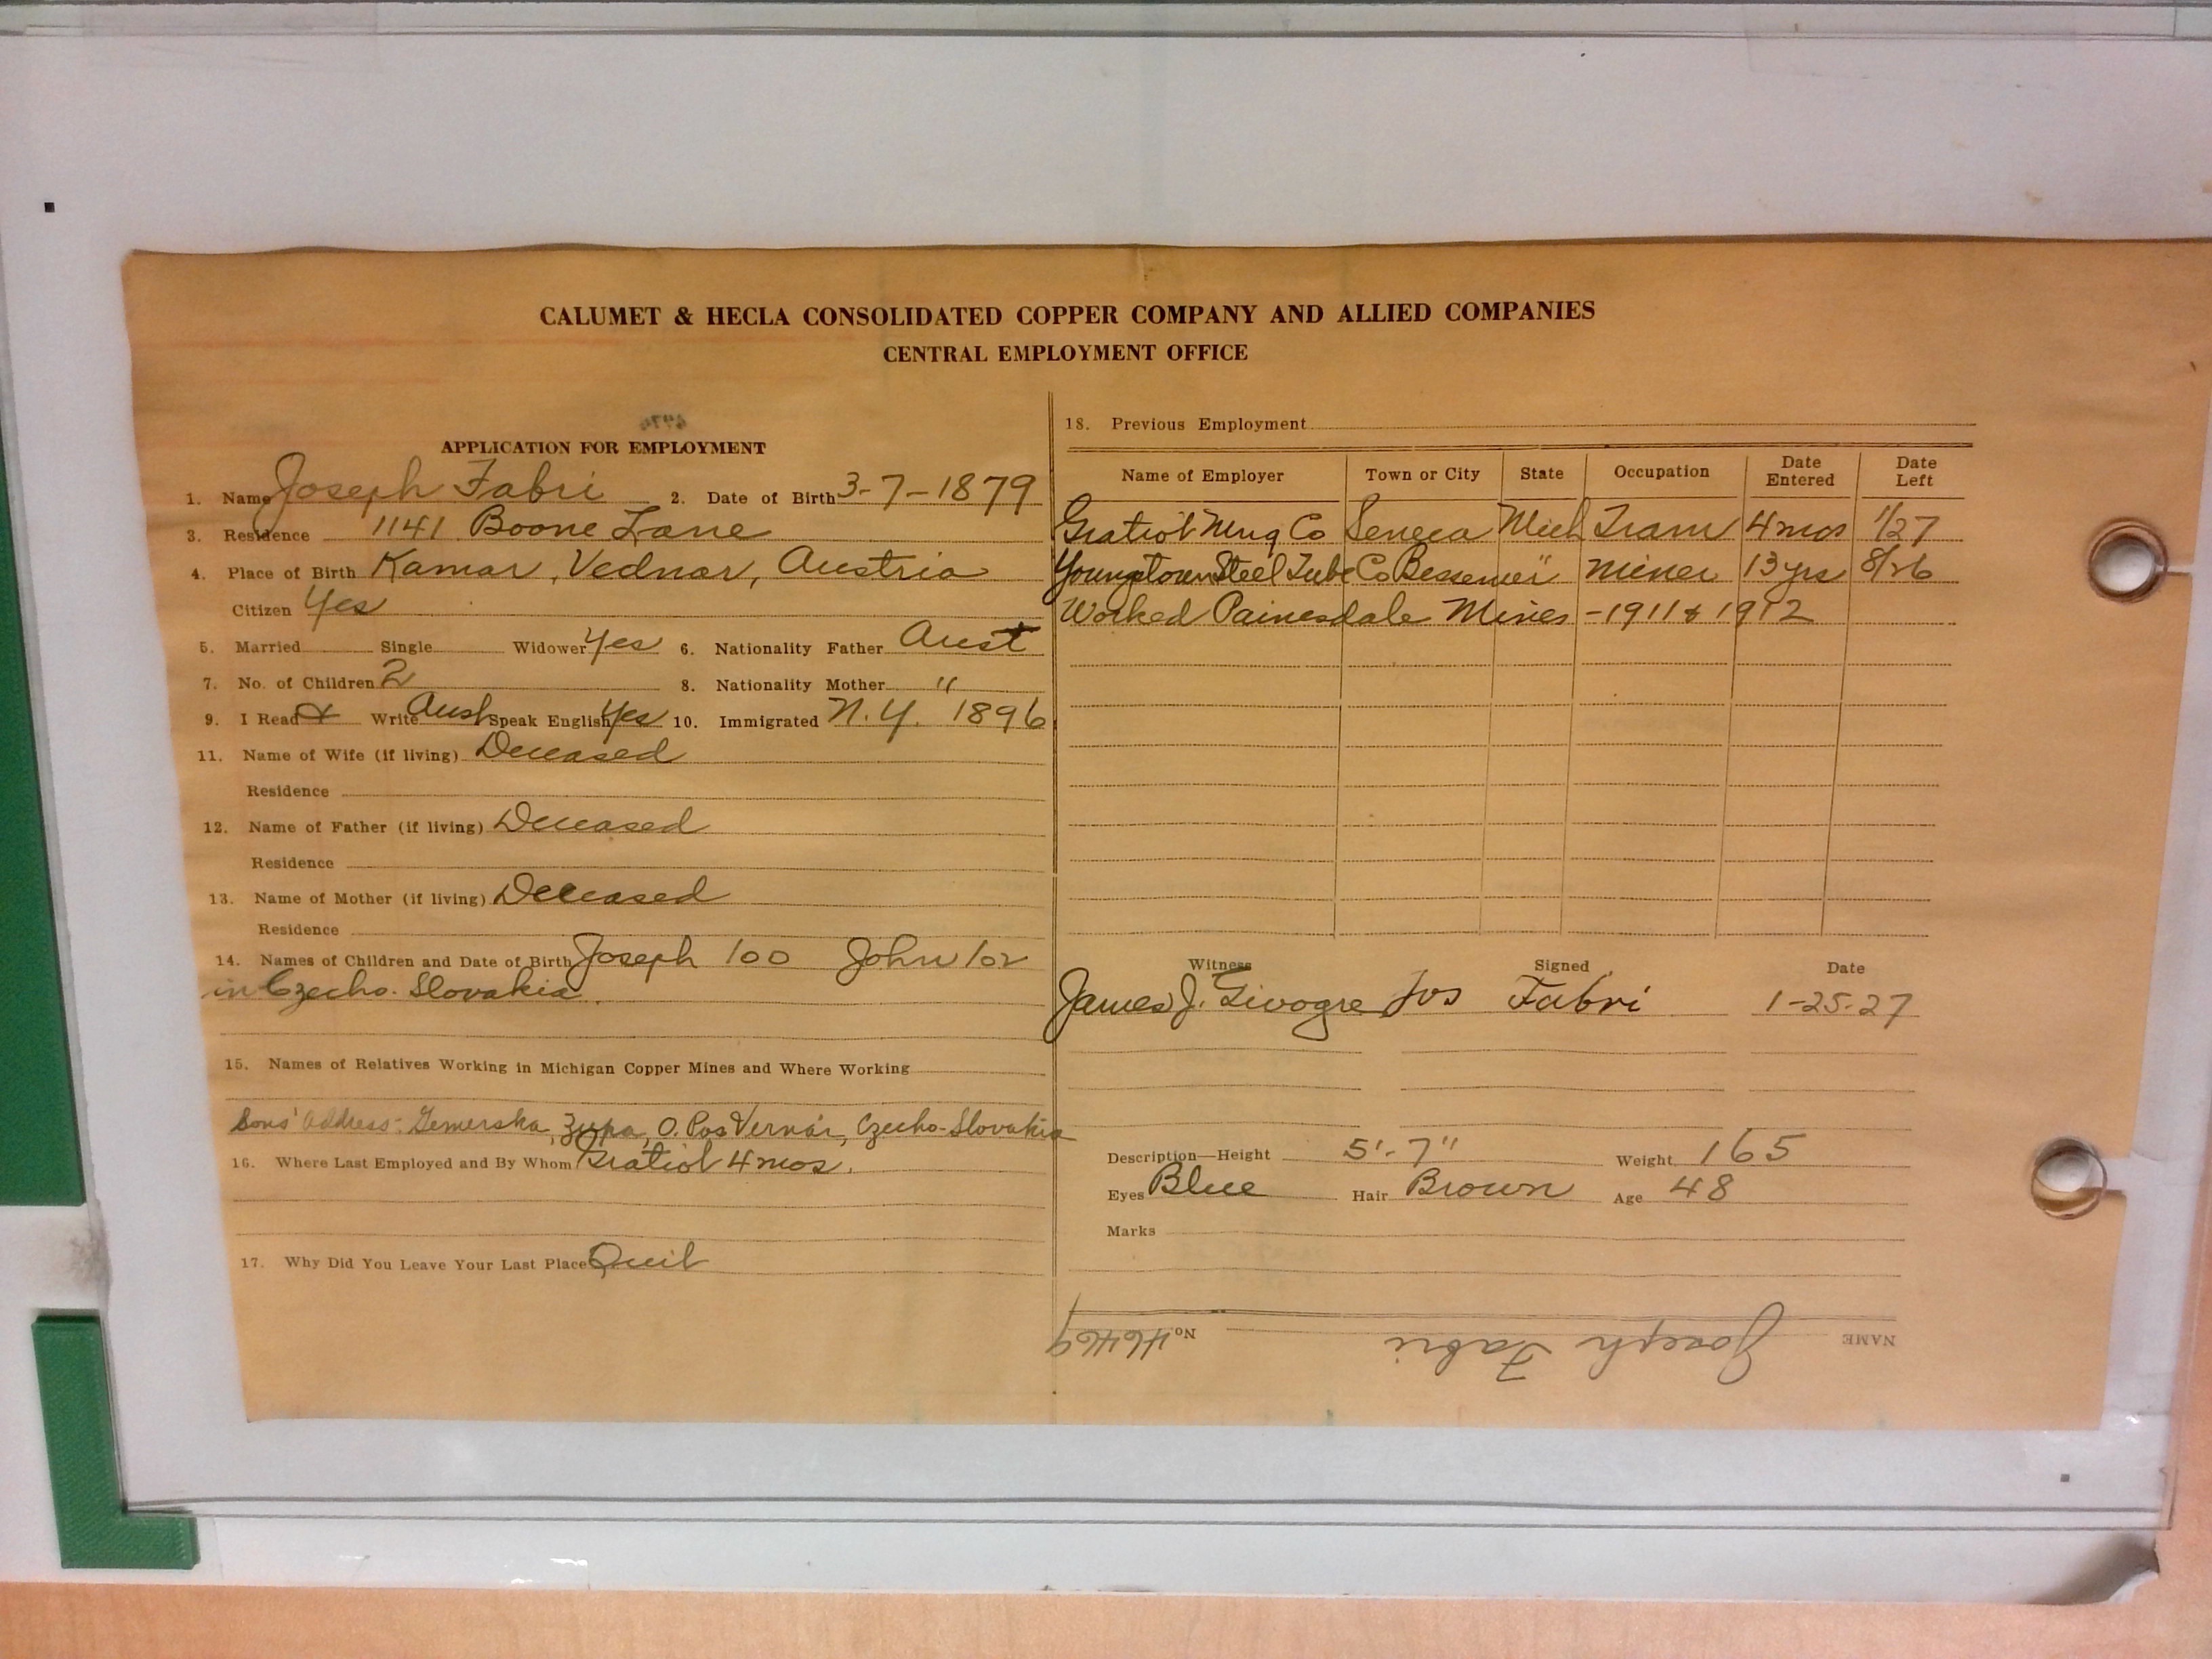 CALUMET & HECLA CONSOLIDATED COPPER COMPANY AND ALLIED COMPANIES
CENTRAL EMPLOYMENT OFFICE
APPLICATION FOR EMPLOYMENT
1. Name Joseph Fabri 2. Date of Birth 3-7-1879
3. Residence 1141 Boone Lane
4. Place of Birth Kamar, Vednar, Austria
Citizen Yes
5. Married Single Widower Yes 6. Nationality Father Aust
7. No. of Children 2 8. Nationality Mother "
9. I Read & Write Aust Speak English Yes 10. Immigrated N.Y. 1896
11. Name of Wife (if living) Deceased
Residence
12. Name of Father (if living) Deceased
Residence
13. Name of Mother (if living) Deceased
Residence
14. Names of Children and Date of Birth Joseph /00 John /02
in Czecho-Slovakia.
15. Names of Relatives Working in Michigan Copper Mines and Where Working
Sons' Address: Gemerska, Zupa, O. Pos Vernár, Czecho-Slovakia
16. Where Last Employed and By Whom Gratiot 4 mos.
17. Why Did You Leave Your Last Place Quit
18. Previous Employment
Name of Employer Town or City State Occupation Date Entered Date Left
Gratiot Mng Co Seneca Mich Tram 4 mos 1/27
Youngstown Steel Tube Co Bessemer " Miner 13 yrs 8/26
Worked Painesdale Mines - 1911 & 1912
Witness Signed Date
James J. Jos Fabri 1-25-27
Description—Height 5'-7" Weight 165
Eyes Blue Hair Brown Age 48
Marks
NAME Joseph Fabri No. 46469